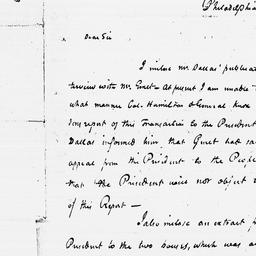 Philadelphia
Dear Sir
I inclose Mr Dallas' publica
terview with Mr Genet - At present I am unable t
what manner Col. Hamilton & General Knox
this report of this Transaction to the President
Dallas informed him, that Genet had sa
appeal from the President to the Peop
that the President will not object
of this Report —
I also inclose an extract f
President to the two houses, which was